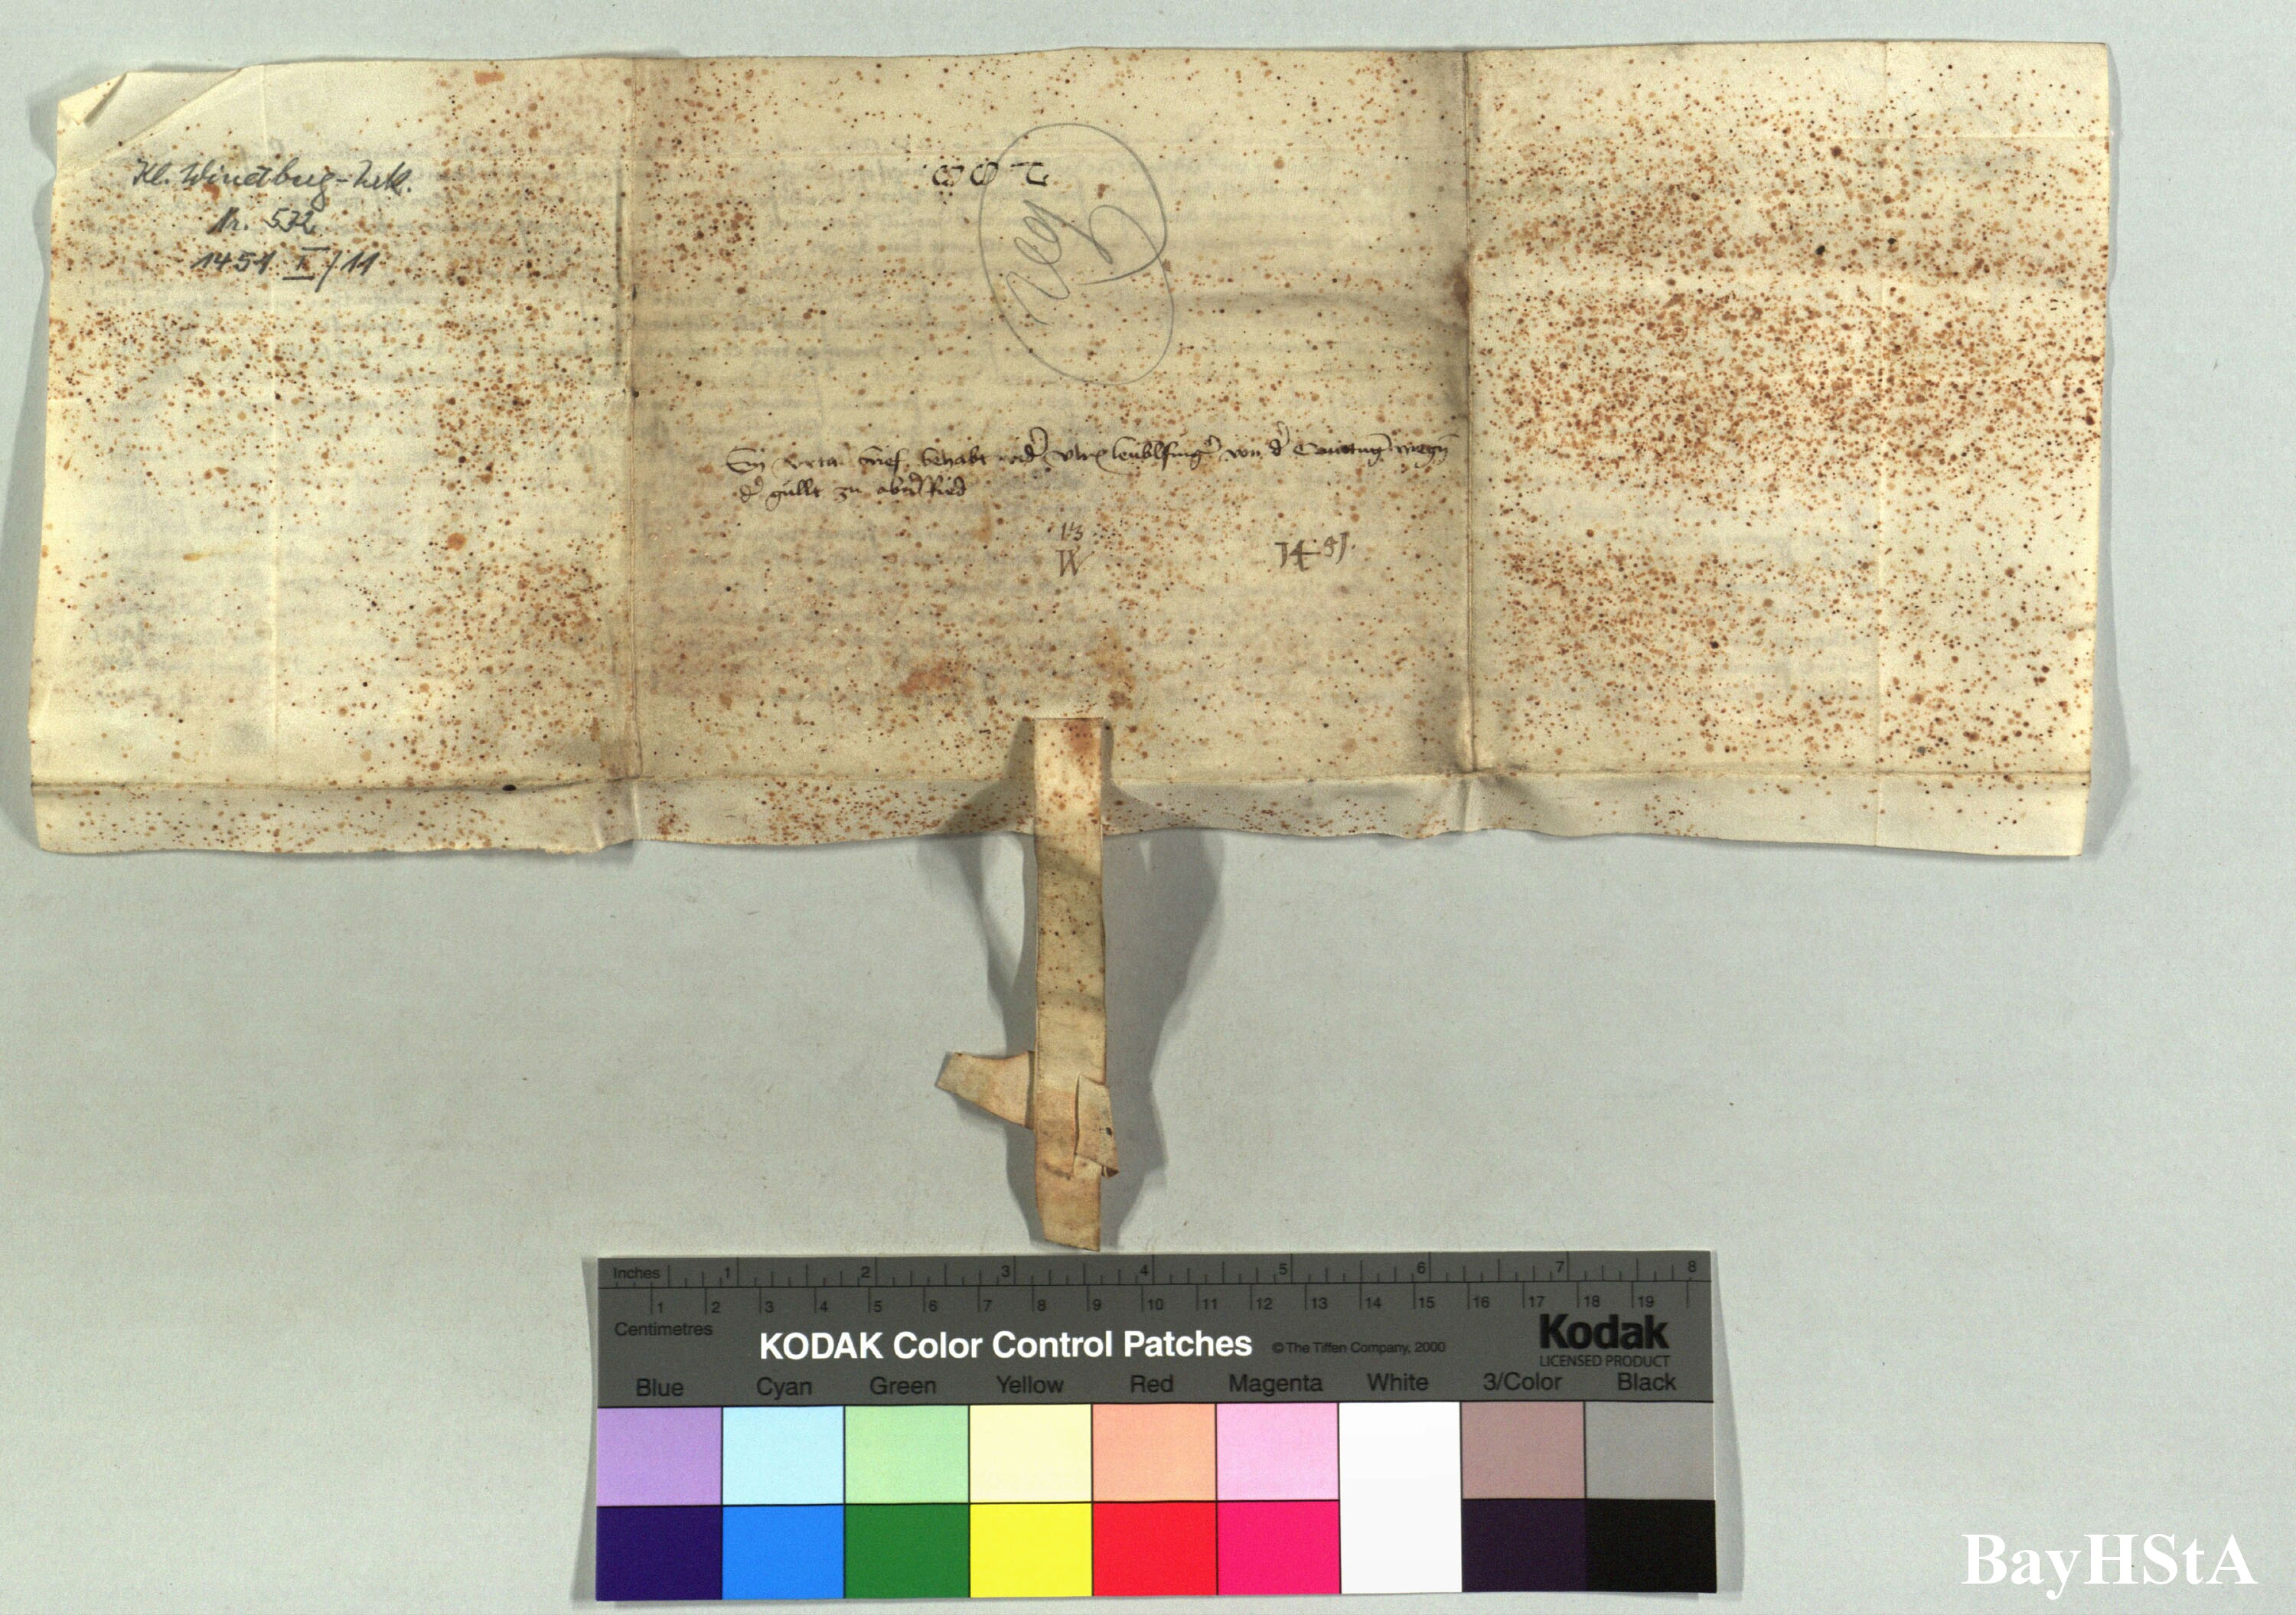 Kl. Windberg-Urk.
Nr. 572
1451 I/11
Reg
Ein brief behabt wid' Ulr' leublfing' von d' wegn
d' gullt zu ried
13
W
1451.
Inches 1 2 3 4 5 6 7 8
1 2 3 4 5 6 7 8 9 10 11 12 13 14 15 16 17 18 19
Centimetres
KODAK Color Control Patches © The Tiffen Company, 2000
Kodak
LICENSED PRODUCT
Blue Cyan Green Yellow Red Magenta White 3/Color Black
BayHStA